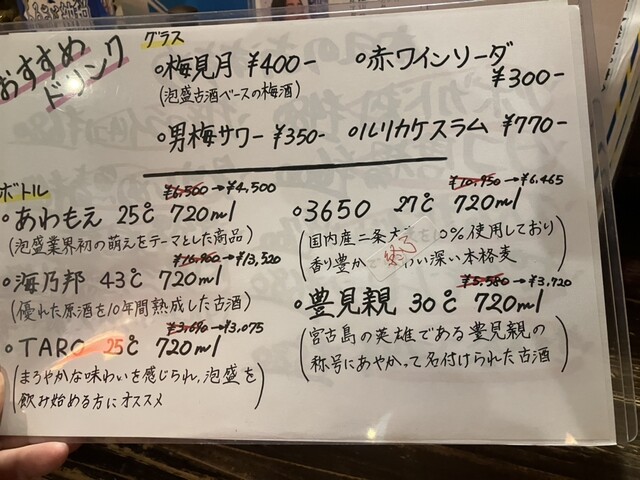 おすすめ
ドリンク
グラス
○梅見月 ¥400-
(泡盛古酒ベースの梅酒)
○赤ワインソーダ
¥300-
○男梅サワー ¥350-
○ルリカケスラム ¥770-
ボトル
¥6,560→¥4,500
○あわもえ 25℃ 720ml
(泡盛業界初の萌えをテーマとした商品)
¥16,960→¥13,520
○海乃邦 43℃ 720ml
(優れた原酒を10年間熟成した古酒)
¥3,690→¥3,075
○TARO 25℃ 720ml
(まろやかな味わいを感じられ、泡盛を
飲み始める方にオススメ)
¥10,950→¥6,465
○3650 27℃ 720ml
(国内産二条大 を 0%使用しており
香り豊かで わい深い本格麦)
¥5,580→¥3,720
○豊見親 30℃ 720ml
(宮古島の英雄である豊見親の
称号にあやかって名付けられた古酒)